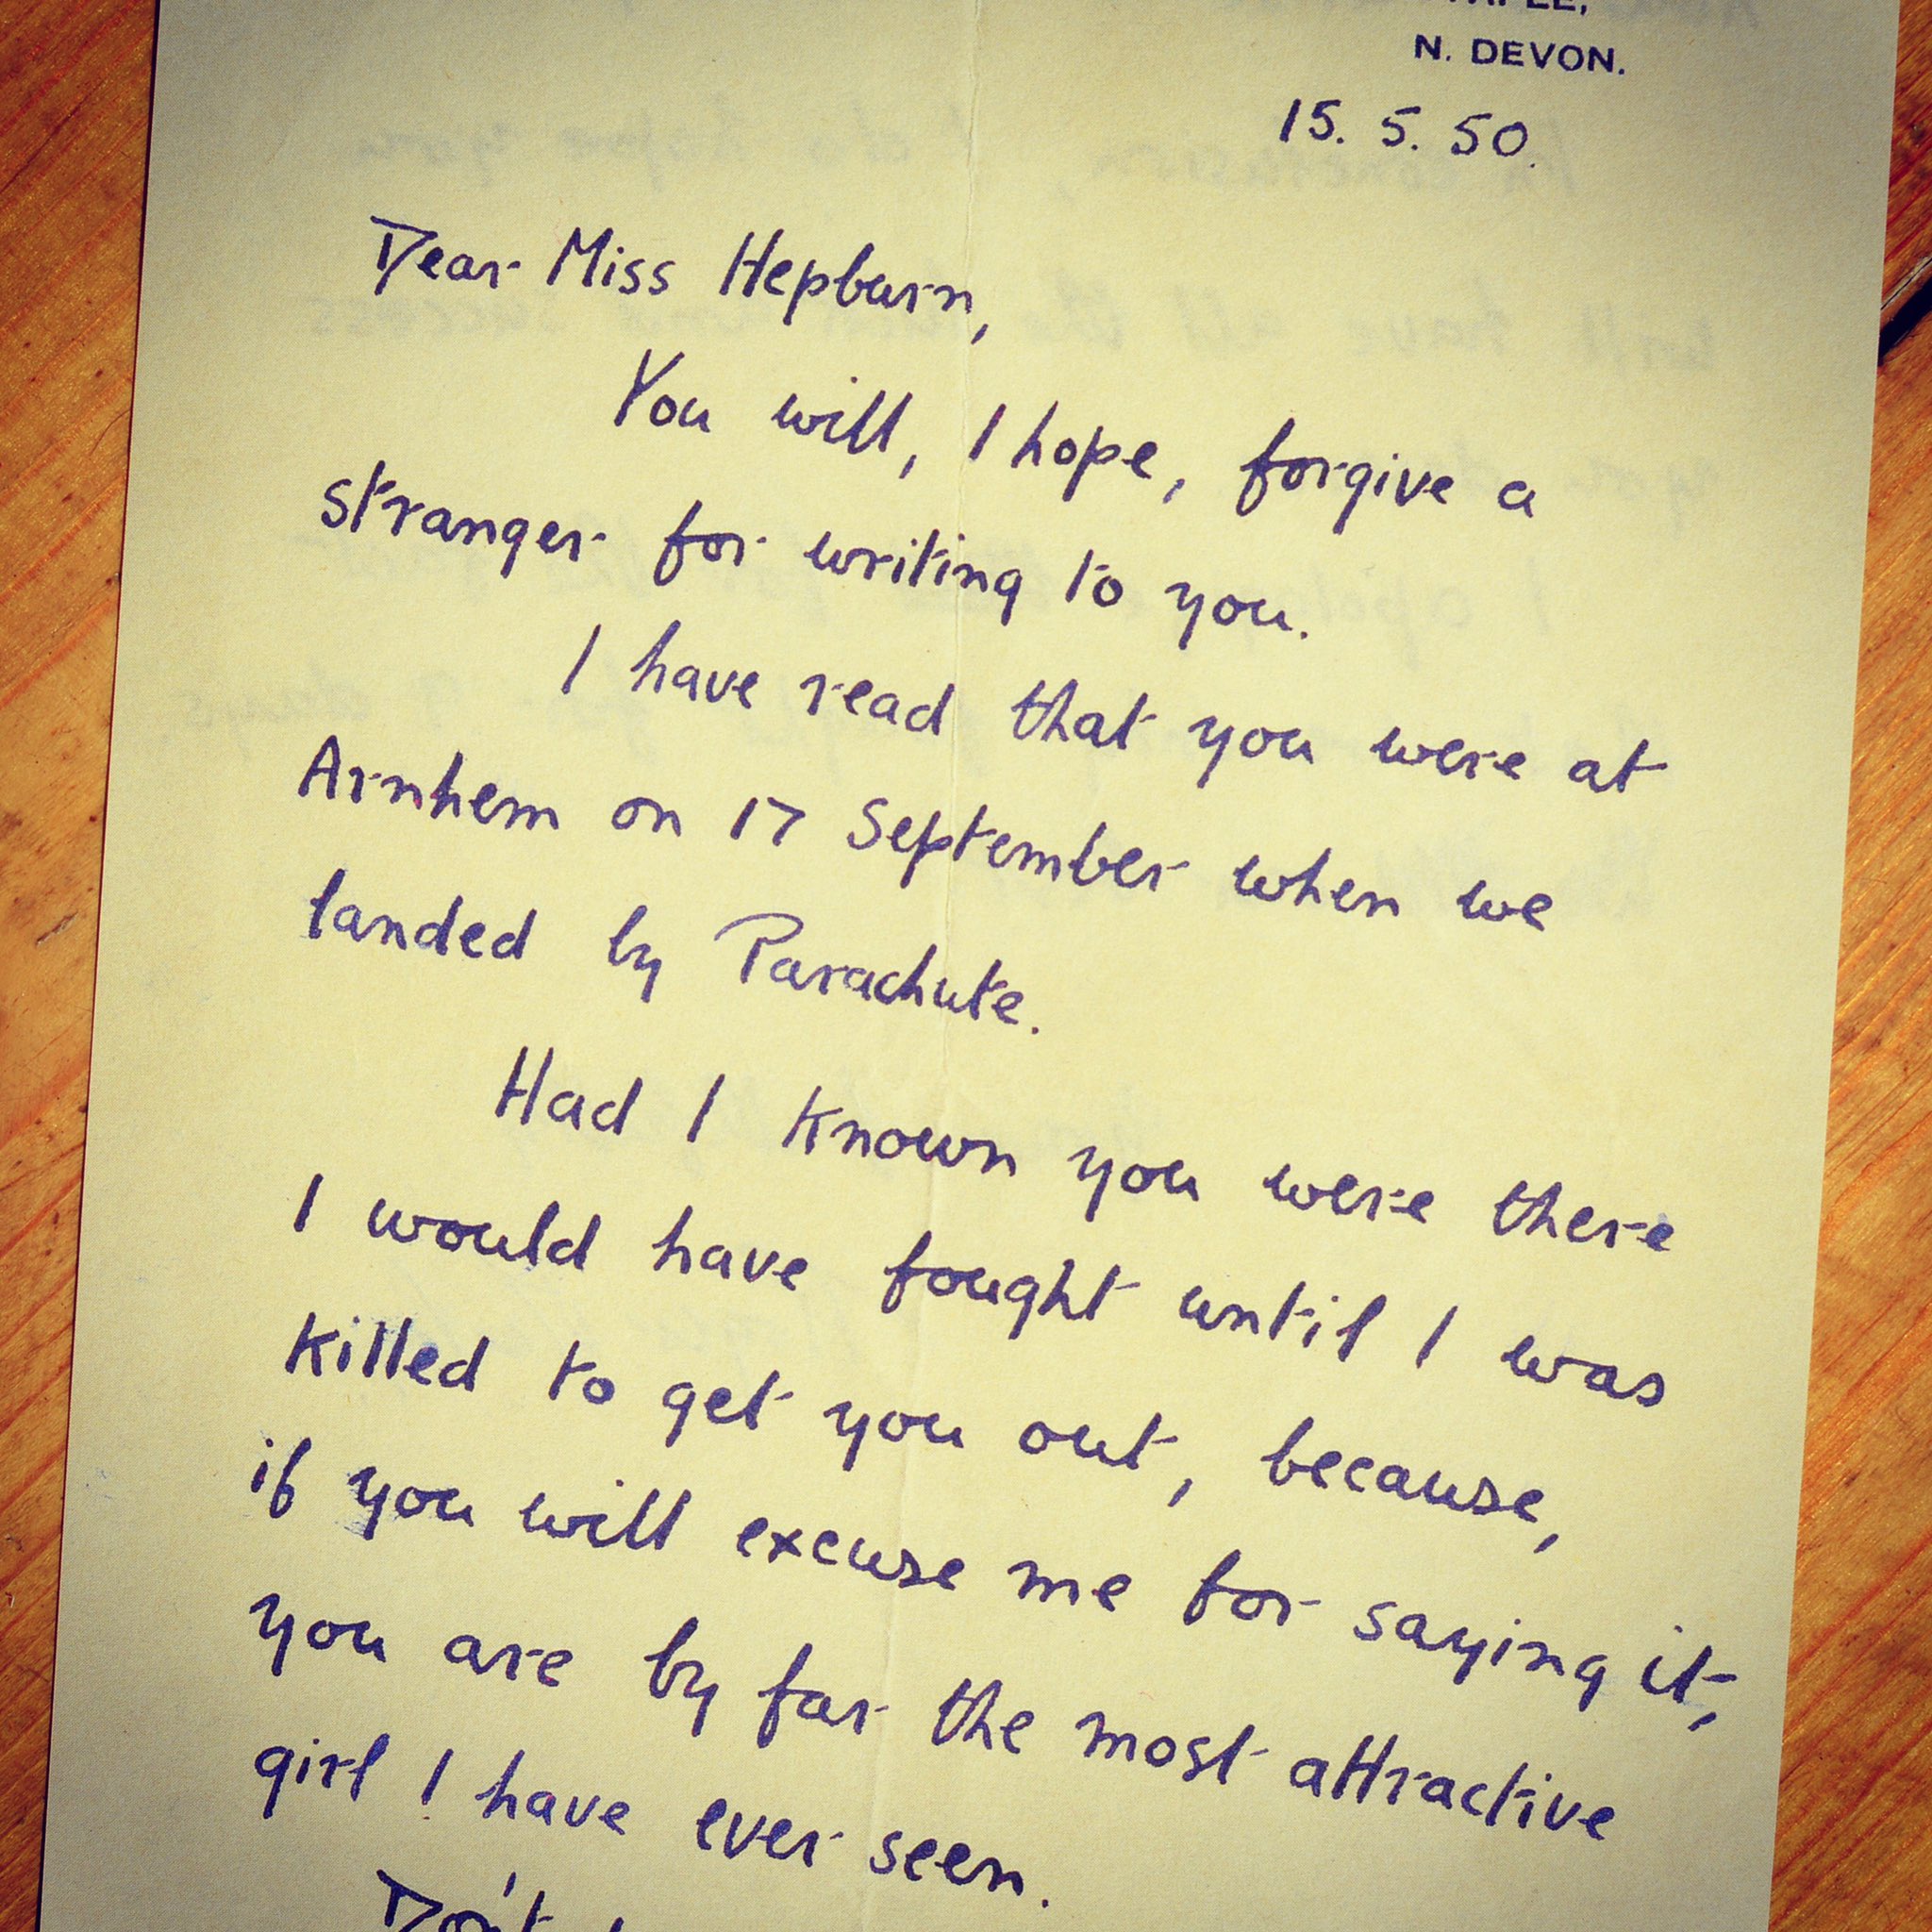 N. DEVON.
15. 5. 50.
Dear Miss Hepburn,
You will, I hope, forgive a
stranger for writing to you.
I have read that you were at
Arnhem on 17 September when we
landed by Parachute.
Had I known you were there
I would have fought until I was
killed to get you out, because,
if you will excuse me for saying it,
you are by far the most attractive
girl I have ever seen.
Don't